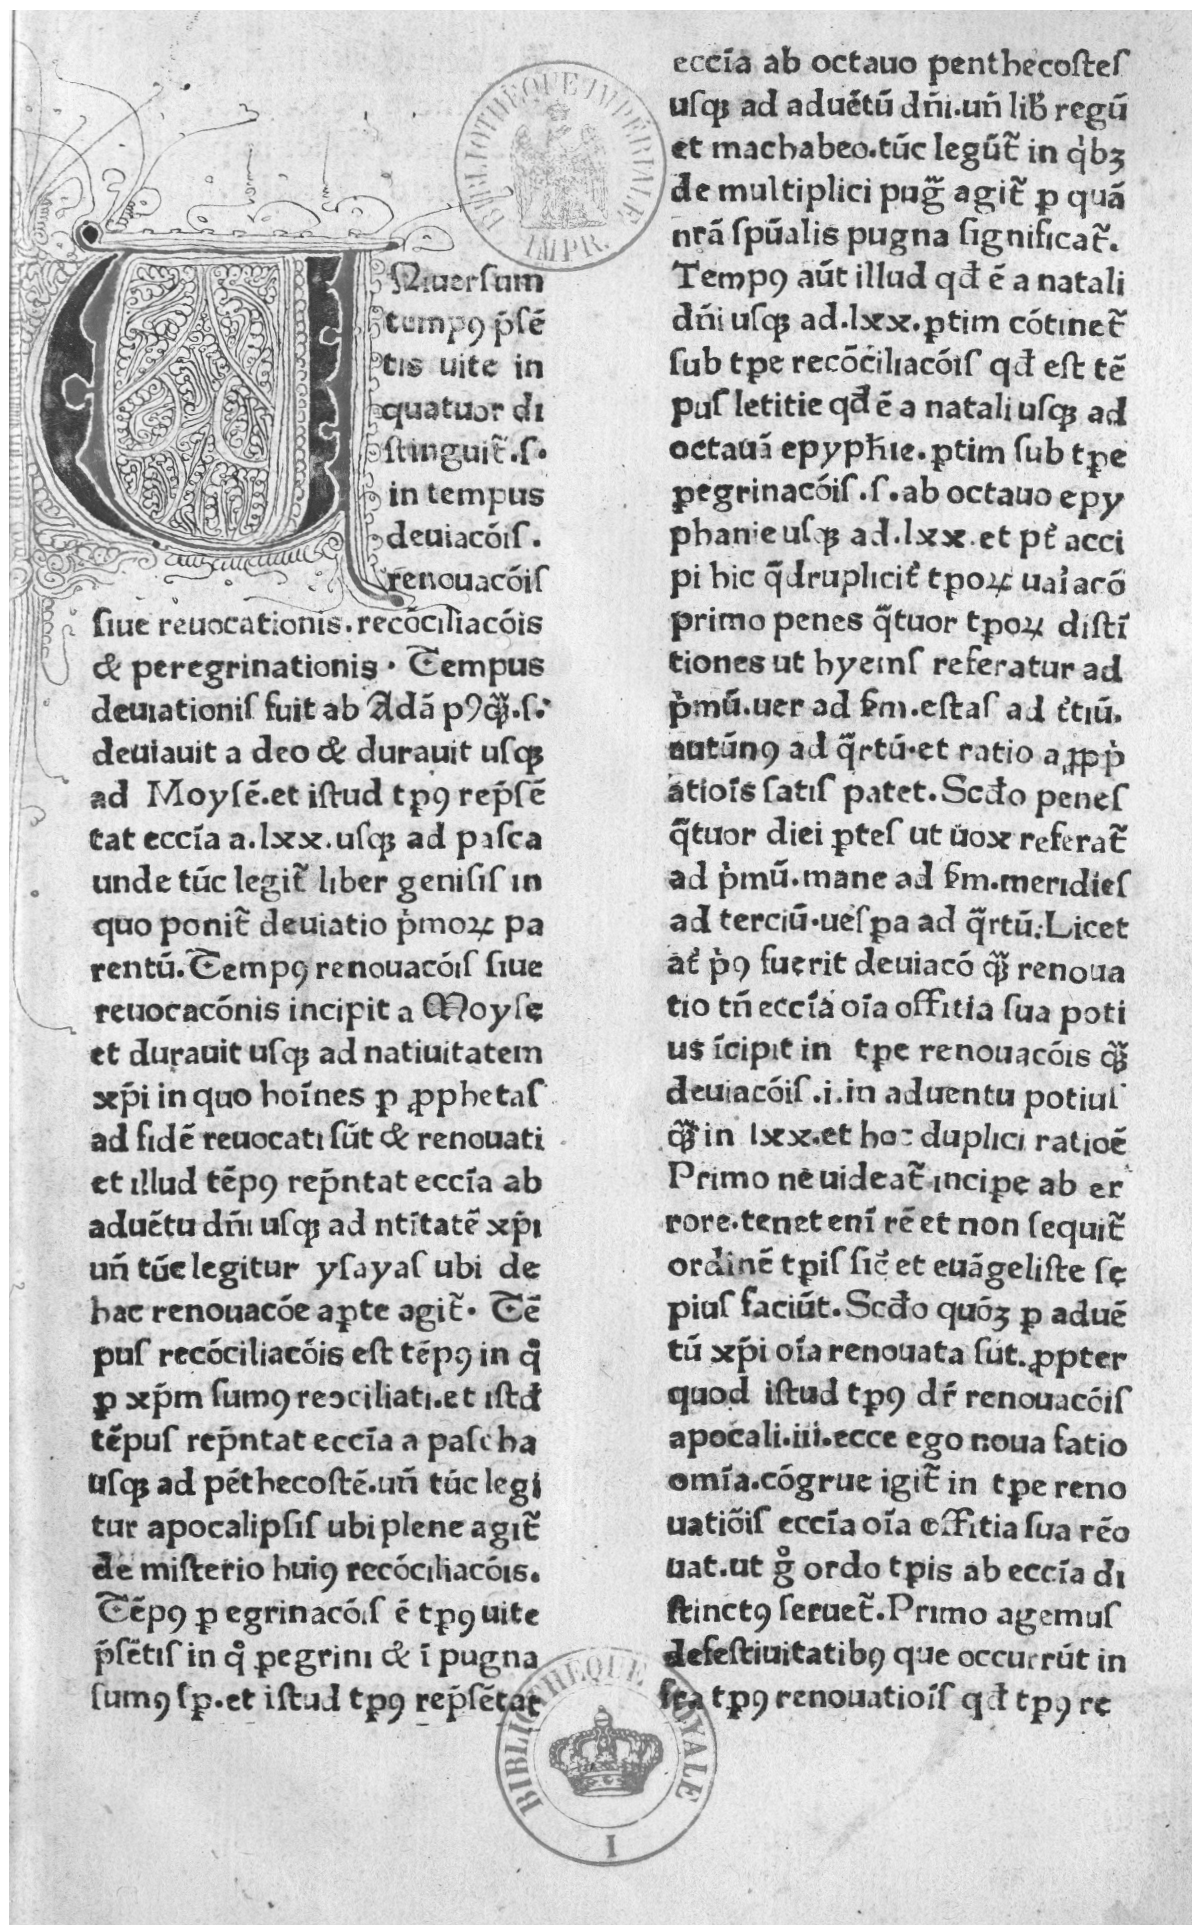 BIBLIOTHÈQUE IMPÉRIALE
IMPR.
UNiuersum
temp9 p̄sē
tis uite in
quatuor di
stinguit̃.s.
in tempus
deuiacōis.
renouacōis
siue reuocationis.recōciliacōis
& peregrinationis. Tempus
deuiationis fuit ab Adā p9qꝫ̄.s.
deuiauit a deo & durauit usqꝫ
ad Moysē.et istud tꝑ9 rep̄sē
tat eccīa a.lxx.usqꝫ ad pasca
unde tūc legit̃ liber genisis in
quo ponit̃ deuiatio p̍moꝝ pa
rentū.Temp9 renouacōis siue
reuocacōnis incipit a Moyse
et durauit usqꝫ ad natiuitatem
xp̄i in quo hoīnes ꝑ ꝓphetas
ad fidē reuocati sūt & renouati
et illud tēp9 rep̄ntat eccīa ab
aduētu dn̄i usqꝫ ad ntītatē xp̄i
un̄ tūc legitur ysayas ubi de
hac renouacōe aꝑte agit̃. Tē
pus recōciliacōis est tēp9 in qͦ
ꝑ xp̄m sum9 recciliati.et istđ
tēpus rep̄ntat eccīa a pascha
usqꝫ ad pēthecostē.un̄ tūc legi
tur apocalipsis ubi plene agit̃
de misterio hui9 recōciliacōis.
Tēp9 ꝑ egrinacōis ē tꝑ9 uite
p̄sētis in qͦ ꝑegrini & ī pugna
sum9 sꝑ.et istud tꝑ9 rep̄sētat
eccīa ab octauo penthecostes
usqꝫ ad aduētū dn̄i.un̄ lib̄ regū
et machabeo.tūc legūt̃ in q̍bꝫ
de multiplici pug̃ agit̃ ꝑ quā
nr̄a spūalis pugna significat̃.
Temp9 aūt illud qđ ē a natali
dn̄i usqꝫ ad.lxx.ꝑtim cōtinet̃
sub tꝑe recōciliacōis qđ est tē
pus letitie qđ ē a natali usqꝫ ad
octauā epyphīe.ꝑtim sub tꝑe
ꝑegrinacōis.s.ab octauo epy
phanie usqꝫ ad.lxx.et pt̄ acci
pi hic q̃druplicit̄ tꝑoꝝ uaīacō
primo penes q̃tuor tꝑoꝝ distī
tiones ut hyems referatur ad
p̍mū.uer ad f̄m.estas ad t̄tiū.
autūn9 ad q̃rtū.et ratio a ꝓpp̍
atioīs satis patet.Scđo penes
q̃tuor diei ꝑtes ut ūox referat̃
ad p̍mū.mane ad f̄m.meridies
ad terciū.uesꝑa ad q̃rtū.Licet
at̄ p̍9 fuerit deuiacō qꝫ̄ renoua
tio tn̄ eccīa oīa offitia sua poti
us īcipit in tꝑe renouacōis qꝫ̄
deuiacōis.i.in aduentu potius
qꝫ̄ in lxx.et hoc duplici ratioē
Primo ne uideat̃ incipe ab er
rore.tenet enī rē et non sequit̃
ordinē tꝑis sic̄ et euāgeliste se
pius faciūt.Scđo quōꝫ ꝑ aduē
tū xp̄i oīa renouata sūt.ꝓpter
quod istud tꝑ9 dr̄ renouacōis
apocali.iii.ecce ego noua fatio
omīa.cōgrue igit̃ in tꝑe reno
uatiōis eccīa oīa offitia sua rēo
uat.ut gͦ ordo tꝑis ab eccīa di
stinct9 seruet̃.Primo agemus
defestiuitatib9 que occurrūt in
fra tꝑ9 renouatioīs qđ tꝑ9 re
BIBLIOTHEQUE ROYALE
I